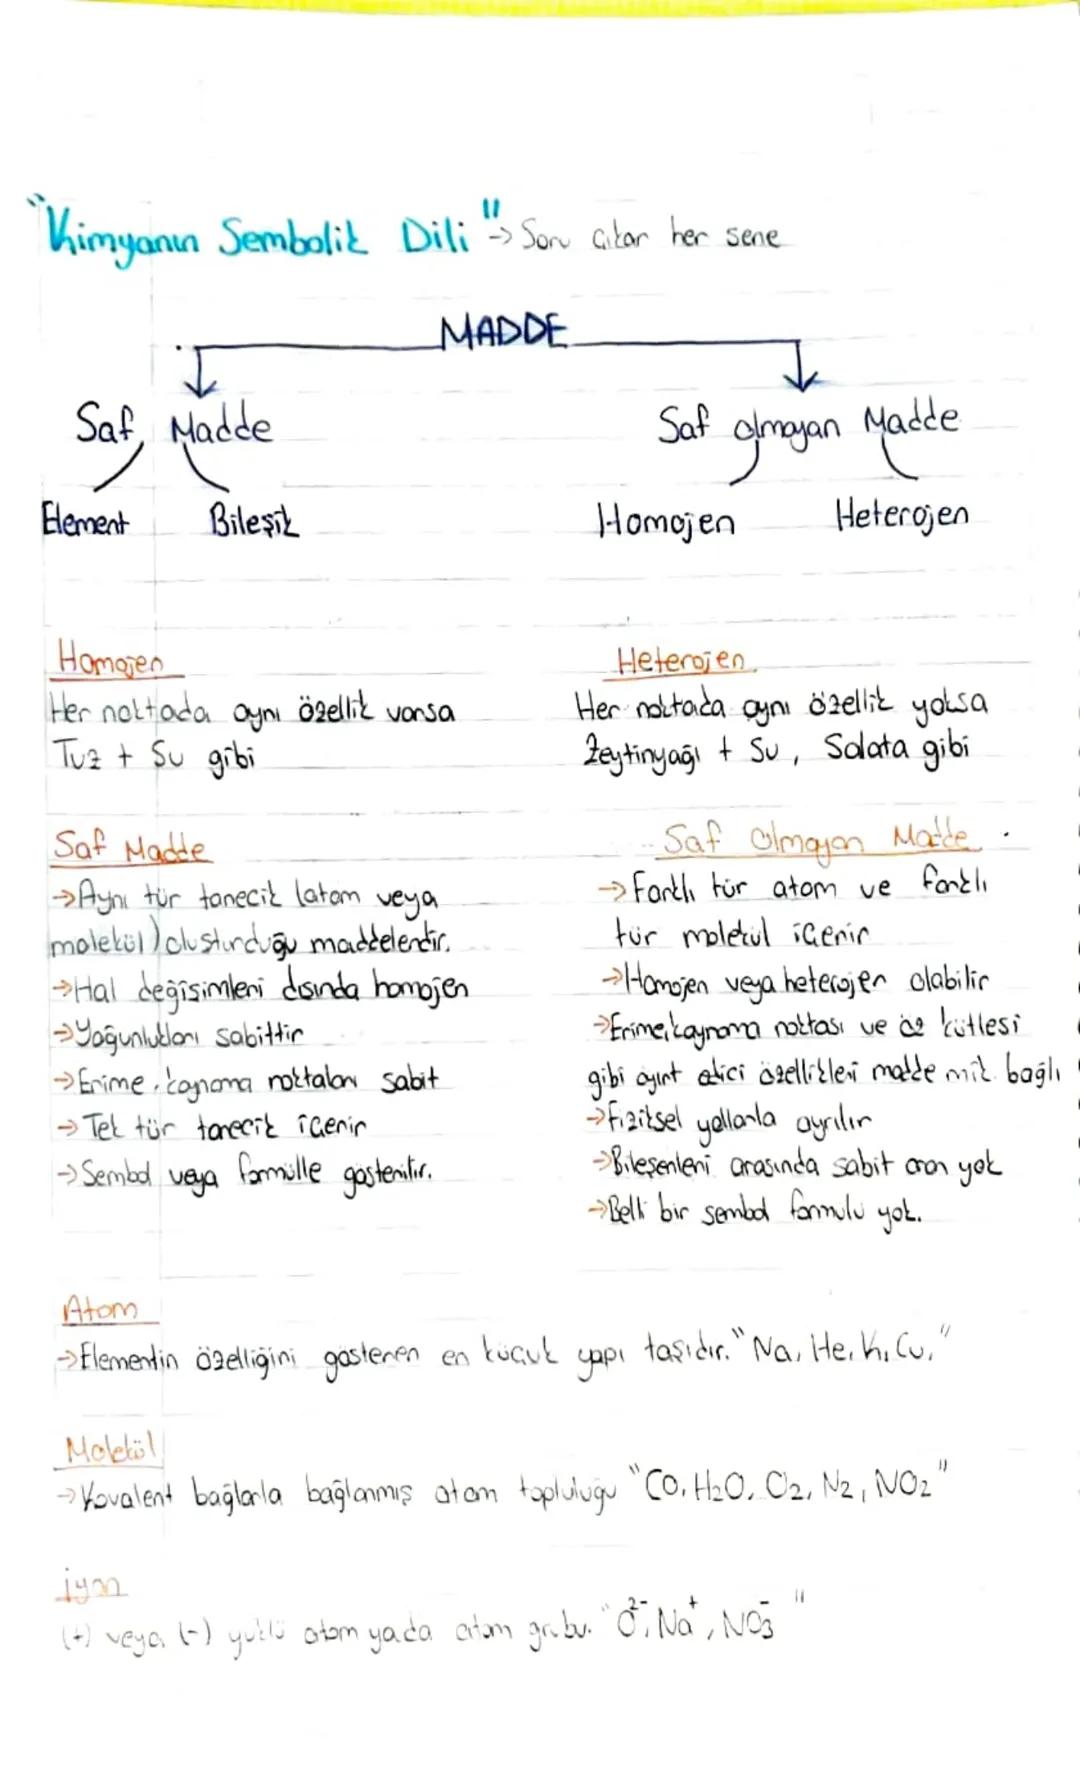 "Kimyanın Sembolik Dili" -> Soru çıkar her sene
MADDE
Saf Madde
Saf olmayan Madde
Element
Bileşik
Homojen
Heterojen
Homojen
Her noktada aynı özellik varsa
Tuz + Su gibi
Heterojen
Her noktada aynı özellik yoksa
Zeytinyağı + Su, Salata gibi
Saf Madde
->Aynı tür tanecik (atom veya
molekül) oluşturduğu maddelerdir.
->Hal değişimleri dışında homojen
->Yoğunlukları sabittir
->Erime, kaynama noktaları sabit
->Tek tür tanecik içerir
->Sembol veya formülle gösterilir.
Saf Olmayan Madde
->Farklı tür atom ve farklı
tür molekül içerir
->Homojen veya heterojen olabilir
->Erime, kaynama noktası ve öz kütlesi
gibi ayırt edici özellikleri madde mik. bağlı
->Fiziksel yollarla ayrılır
->Bileşenleri arasında sabit oran yok
->Belli bir sembol formulu yok.
Atom
->Elementin özelliğini gösteren en küçük yapı taşıdır. "Na, He, K, Cu,"
Molekül
->Kovalent bağlarla bağlanmış atom topluluğu "CO, H₂O, O₂, N₂, NO₂"
İyon
(+) veya (-) yüklü atom yada atom grubu. "O²⁻, Na⁺, NO₃⁻"